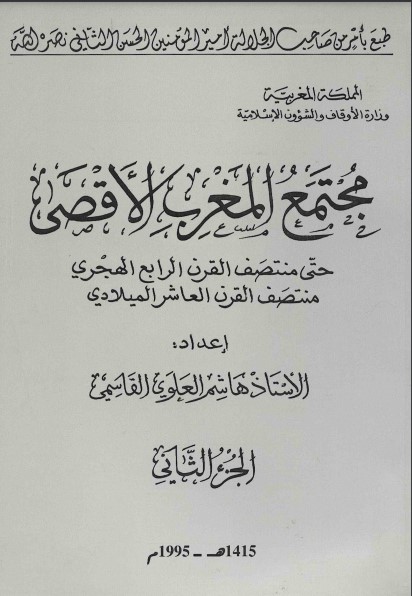 طبع بأمر من صاحب الجلالة أمير المؤمنين الحسن الثاني نصره الله
المملكة المغربية
وزارة الأوقاف والشؤون الإسلامية
مُجْتَمَعُ المَغْرِبِ الأَقْصَى
حتّى منتصف القرن الرابع الهجري
منتصف القرن العاشر الميلادي
إعداد:
الأستاذ هاشم العلوي القاسمي
الجزء الثّاني
1415هـ – 1995م